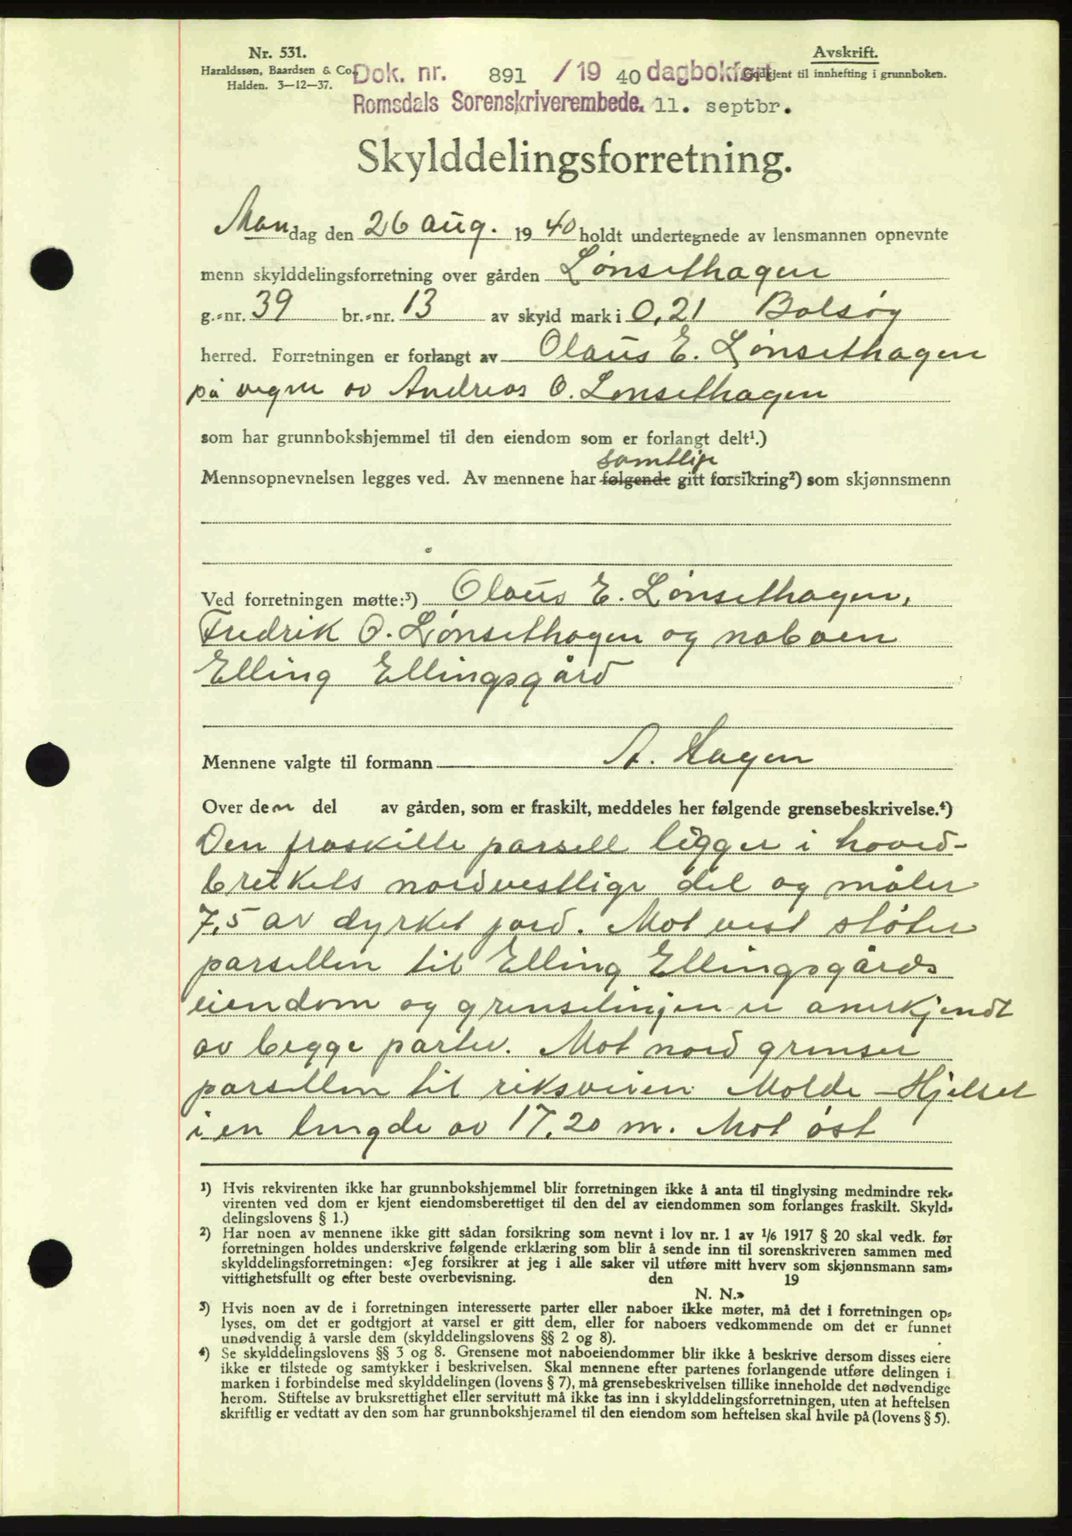 Nr. 531.
Haraldssøn, Baardsen & Co.
Halden. 3—12—37.
Avskrift.
Godkjent til innhefting i grunnboken.
Dok. nr. 891 /19 40 dagbokført
Romsdals Sorenskriverembede. 11. septbr.
Skylddelingsforretning.
Mandag den 26 aug. 1940 holdt undertegnede av lensmannen opnevnte
menn skylddelingsforretning over gården Lønsethagen
g.-nr. 39 br.-nr. 13 av skyld mark i 0,21 Bolsøy
herred. Forretningen er forlangt av Olaus E. Lønsethagen
på vegne av Andreas O. Lønsethagen
som har grunnbokshjemmel til den eiendom som er forlangt delt¹.)
samtlige
Mennsopnevnelsen legges ved. Av mennene har følgende gitt forsikring²) som skjønnsmenn
Ved forretningen møtte:³) Olaus E. Lønsethagen,
Fredrik O. Lønsethagen og naboen
Elling Ellingsgård
Mennene valgte til formann A. Hagen
Over den del av gården, som er fraskilt, meddeles her følgende grensebeskrivelse.⁴)
Den fraskilte parsell ligger i hoved-
brukets nordvestlige del og måler
7,5 av dyrket jord. Mot vest støter
parsellen til Elling Ellingsgårds
eiendom og grenselinjen er anerkjendt
av begge parter. Mot nord grenser
parsellen til riksveien Molde - Hjelset
i en lengde av 17,20 m. Mot øst
¹) Hvis rekvirenten ikke har grunnbokshjemmel blir forretningen ikke å anta til tinglysing medmindre rek-
virenten ved dom er kjent eiendomsberettiget til den del av eiendommen som forlanges fraskilt. Skyld-
delingslovens § 1.)
²) Har noen av mennene ikke gitt sådan forsikring som nevnt i lov nr. 1 av 1/6 1917 § 20 skal vedk. før
forretningen holdes underskrive følgende erklæring som blir å sende inn til sorenskriveren sammen med
skylddelingsforretningen: «Jeg forsikrer at jeg i alle saker vil utføre mitt hverv som skjønnsmann sam-
vittighetsfullt og efter beste overbevisning. den 19
N. N.»
³) Hvis noen av de i forretningen interesserte parter eller naboer ikke møter, må det i forretningen op-
lyses, om det er godtgjort at varsel er gitt dem, eller for naboers vedkommende om det er funnet
unødvendig å varsle dem (skylddelingslovens §§ 2 og 8).
⁴) Se skylddelingslovens §§ 3 og 8. Grensene mot naboeiendommer blir ikke å beskrive dersom disses eiere
ikke er tilstede og samtykker i beskrivelsen. Skal mennene efter partenes forlangende utføre delingen i
marken i forbindelse med skylddelingen (lovens § 7), må grensebeskrivelsen tillike inneholde det nødvendige
herom. Stiftelse av bruksrettighet eller servitutt må ikke tas inn i skylddelingsforretningen, uten at heftelsen
skriftlig er vedtatt av den som har grunnbokshjemmel til den eiendom som heftelsen skal hvile på (lovens § 5).